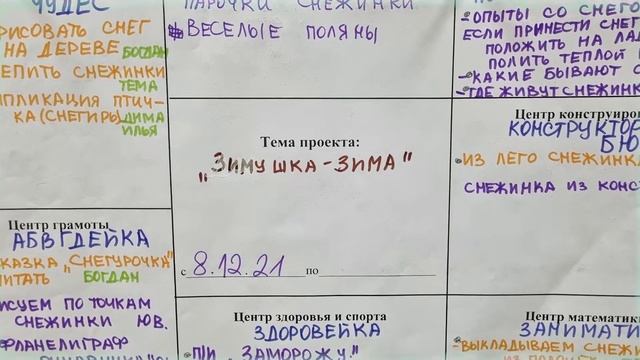 ЧУДЕС
РИСОВАТЬ СНЕГ
НА ДЕРЕВЕ БОГДАН
ЛЕПИТЬ СНЕЖИНКИ
ТЕМА
АППЛИКАЦИЯ ПТИЧ-
КА (СНЕГИРЬ) ДИМА
ИЛЬЯ
ПАРОЧКИ СНЕЖИНКИ
ВЕСЕЛЫЕ ПОЛЯНЫ
- ОПЫТЫ СО СНЕГО
ЕСЛИ ПРИНЕСТИ СНЕГ
ПОЛОЖИТЬ НА ЛАД
ПОЛИТЬ ТЕПЛОЙ
- КАКИЕ БЫВАЮТ С
- ГДЕ ЖИВУТ СНЕЖИНК
Тема проекта:
„ЗИМУШКА-ЗИМА"
с 8.12.21 по
Центр конструиров
КОНСТРУКТОР
БЮ
ИЗ ЛЕГО СНЕЖИНКА
СНЕЖИНКА ИЗ КОНС
Центр грамоты
АБВГДЕЙКА
СКАЗКА „СНЕГУРОЧКА"
ЧИТАТЬ БОГДАН
РИСУЕМ ПО ТОЧКАМ
СНЕЖИНКИ ЮВ.
ФЛАНЕЛИГРАФ
Центр здоровья и спорта
ЗДОРОВЕЙКА
П/И „ЗАМОРОЖУ."
Центр математики
ЗАНИМАТИ
- ВЫКЛАДЫВАЕМ СНЕЖИ